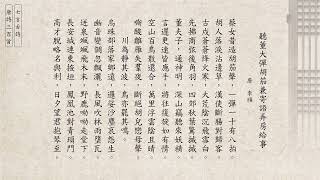 聽董大彈胡笳兼寄語弄房給事
唐 李頎
蔡女昔造胡笳聲，一彈一十有八拍。
胡人落淚沾邊草，漢使斷腸對歸客。
古戍蒼蒼烽火寒，大荒陰沉飛雪白。
先拂商弦後角羽，四郊秋葉驚摵摵。
董夫子，通神明，深山竊聽來妖精。
言遲更速皆應手，將往復旋如有情。
空山百鳥散還合，萬里浮雲陰且晴。
嘶酸雛雁失群夜，斷絕胡兒戀母聲。
川為靜其波，鳥亦罷其鳴。
烏珠部落家鄉遠，邏娑沙塵哀怨生。
幽音變調忽飄灑，長風吹林雨墮瓦。
迸泉颯颯飛木末，野鹿呦呦走堂下。
長安城連東掖垣，鳳凰池對青瑣門。
高才脫略名與利，日夕望君抱琴至。
七言古詩
唐詩三百首